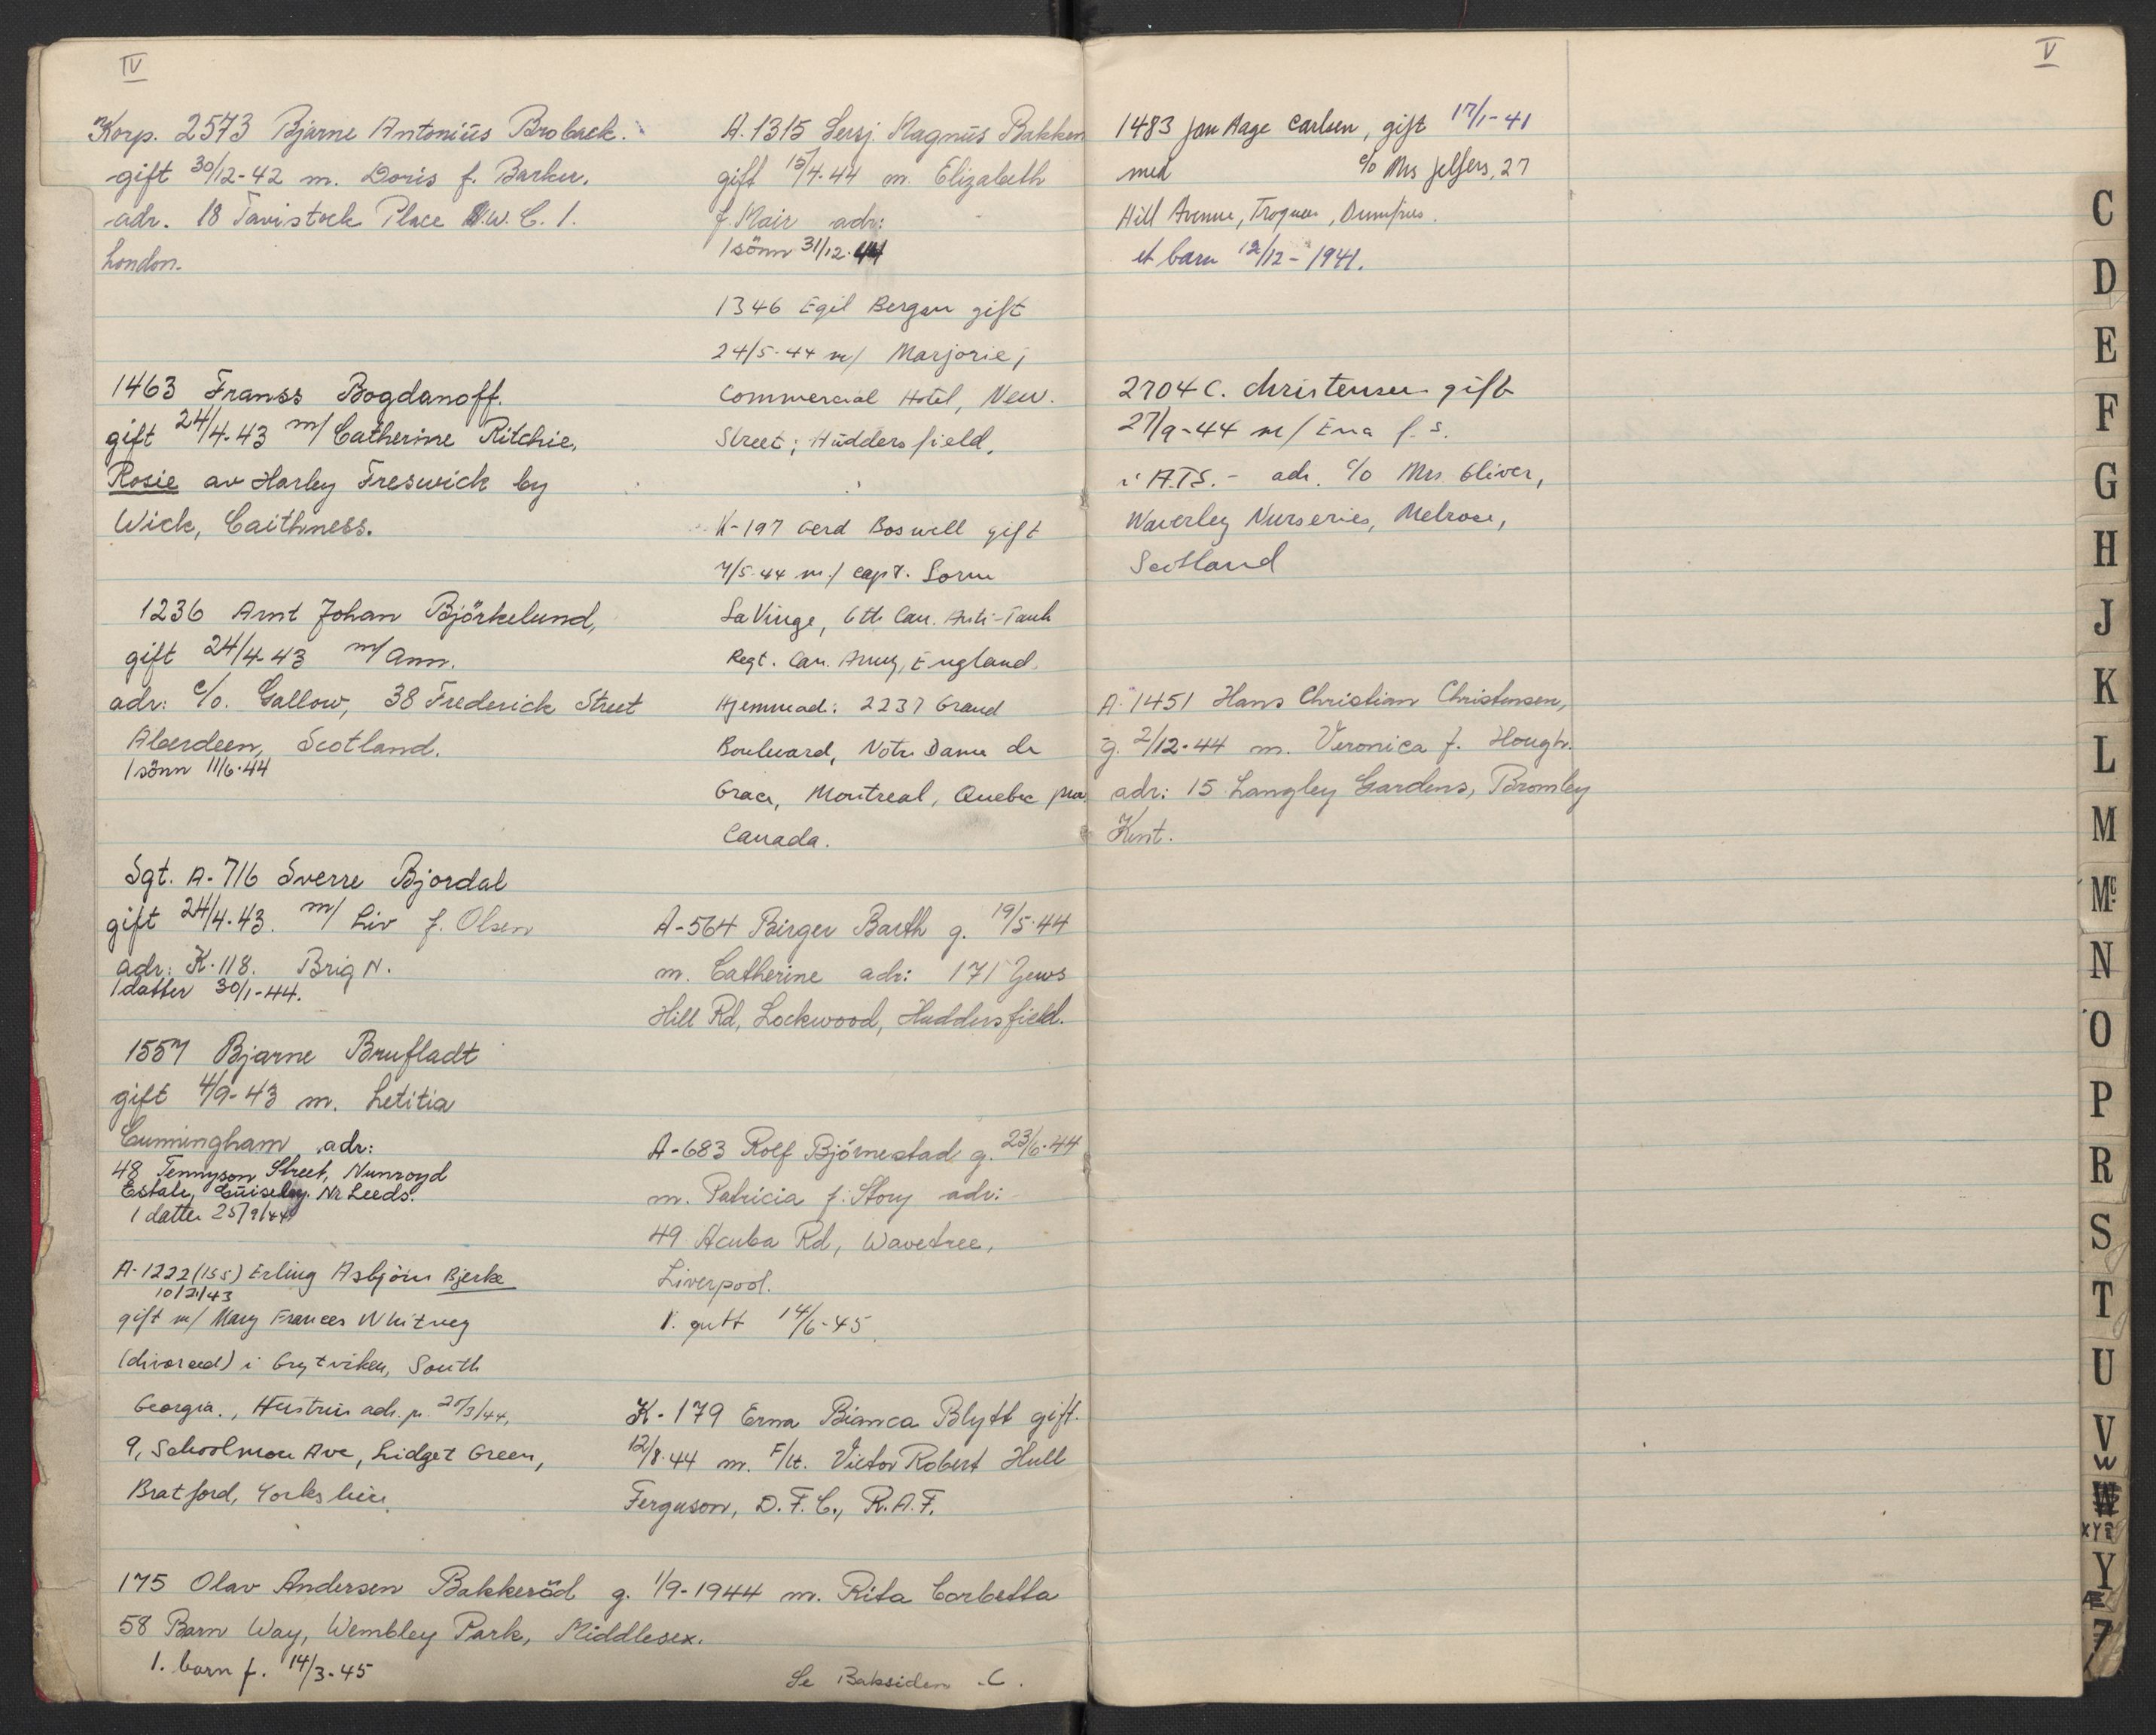 IV
Korp. 2573 Bjarne Antonius Brobaek.
gift 30/12-42 m. Doris f. Barker.
adr. 18 Tavistock Place W.C. 1.
London.
1463 Franss Bogdanoff.
gift 24/4-43 m/ Catherine Ritchie,
Rosie av Harley Freswick by
Wick, Caithness.
1236 Arnt Johan Björkelund,
gift 24/4-43 m/ Ann.
adr: c/o. Gallow, 38 Frederick Street
Aberdeen, Scotland.
1 sönn 11/6-44
Sgt. A-716 Sverre Bjordal
gift 24/4-43. m/ Liv f. Olsen
adr: K-118. Brig N.
1 datter 30/1-44.
1557 Bjarne Brufladt
gift 4/9-43 m. Letitia
Cunningham adr:
48 Tennyson Street, Nunroyd
Estate, Guiseley. Nr Leeds.
1 datter 25/9/44
A-1222(155) Erling Asbjörn Bjerke
10/21/43
gift m/ Mary Frances Whitney
(divorced) i Grytviken, South
Georgia., Hustruis adr. pr. 25/3/44,
9, Schoolmore Ave, Lidget Green,
Bratford, Yorkshire.
175 Olav Andersen Bakkeröd g. 1/9-1944 m. Rita Corbetta
58 Barn Way, Wembley Park, Middlesex.
1. barn f. 14/3-45
A. 1315 Sersj. Magnus Bakken
gift 15/4-44 m. Elizabeth
f. Mair adr:
1 sönn 31/12-44
1346 Egil Bergan gift
24/5-44 m/ Marjorie;
Commercial Hotel, New.
Street; Huddersfield.
K-197 Gerd Boswell gift
7/5-44 m/ capt. Lorne
LaVinge, 6th Can. Anti-Tank
Regt. Can. Army, England.
Hjemmead: 2237 Grand
Boulevard, Notre Dame de
Grace, Montreal, Quebec
Canada.
A-564 Birger Barth g. 19/5-44
m. Catherine adr: 171 Yews
Hill Rd, Lockwood, Huddersfield.
A-683 Rolf Björnestad g. 23/6-44
m. Patricia f. Story adr:
49 Acuba Rd, Wavetree,
Liverpool.
1. gutt 14/6-45
K-179 Erna Bianca Blytt gift.
12/8-44 m. F/Lt. Victor Robert Hull
Ferguson, D.F.C., R.A.F.
Se Baksiden C.
V
1483 Jan Aage Carlsen, gift 17/1-41
med c/o Mrs Jelfers, 27
Hill Avenue, Troqueer, Dumfries.
et barn 12/12-1941.
2704 C. Christensen gift
27/9-44 m/ Ena f. S.
i A.T.S. - adr. c/o Mrs. Oliver,
Waverley Nurseries, Melrose,
Scotland
A-1451 Hans Christian Christensen,
g. 2/12-44 m. Veronica f. Hough.
adr: 15 Langley Gardens, Bromley
Kent.
C
D
E
F
G
H
J
K
L
M
Mc
N
O
P
R
S
T
U
V
W
W
XYZ
Y
Æ